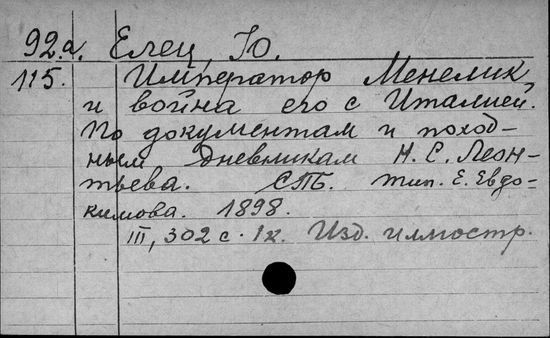 92.а. Елец, Ю.
115. Император Менелик
и война его с Италией.
По документам и поход-
ным дневникам Н. С. Леон-
тьева. СПБ. тип. Е. Евдо-
кимова. 1898.
III, 302 с. 1 к. Изд. иллюстр.